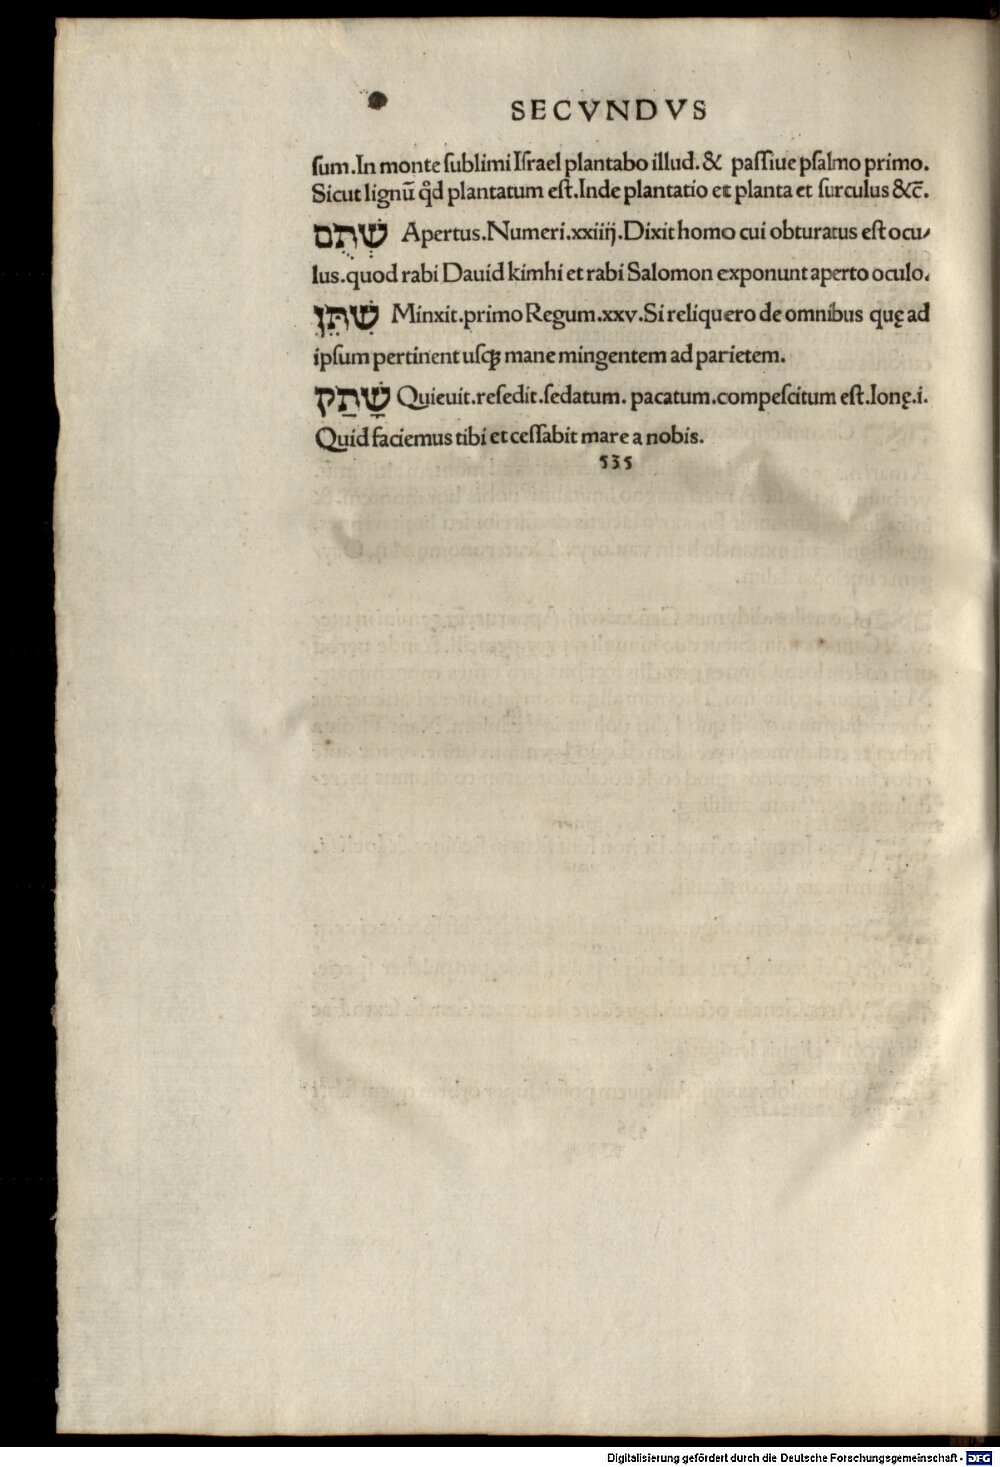 SECVNDVS
ſum.In monte ſublimi Iſrael plantabo illud.& paſſiue pſalmo primo.
Sicut lignū q̄d plantatum eſt.Inde plantatio et planta et ſurculus &c̄.
שְׁתֻם Apertus.Numeri.xxiiij.Dixit homo cui obturatus eſt ocu/
lus.quod rabi Dauid kimhi et rabi Salomon exponunt aperto oculo.
שִׁתֵּן Minxit.primo Regum.xxv.Si reliquero de omnibus quę ad
ipſum pertinent uſqꝫ mane mingentem ad parietem.
שָׁתַק Quieuit.reſedit.ſedatum. pacatum.compeſcitum eſt.Ionę.i.
Quid faciemus tibi et ceſſabit mare a nobis.
535
Digitalisierung gefördert durch die Deutsche Forschungsgemeinschaft - DFG